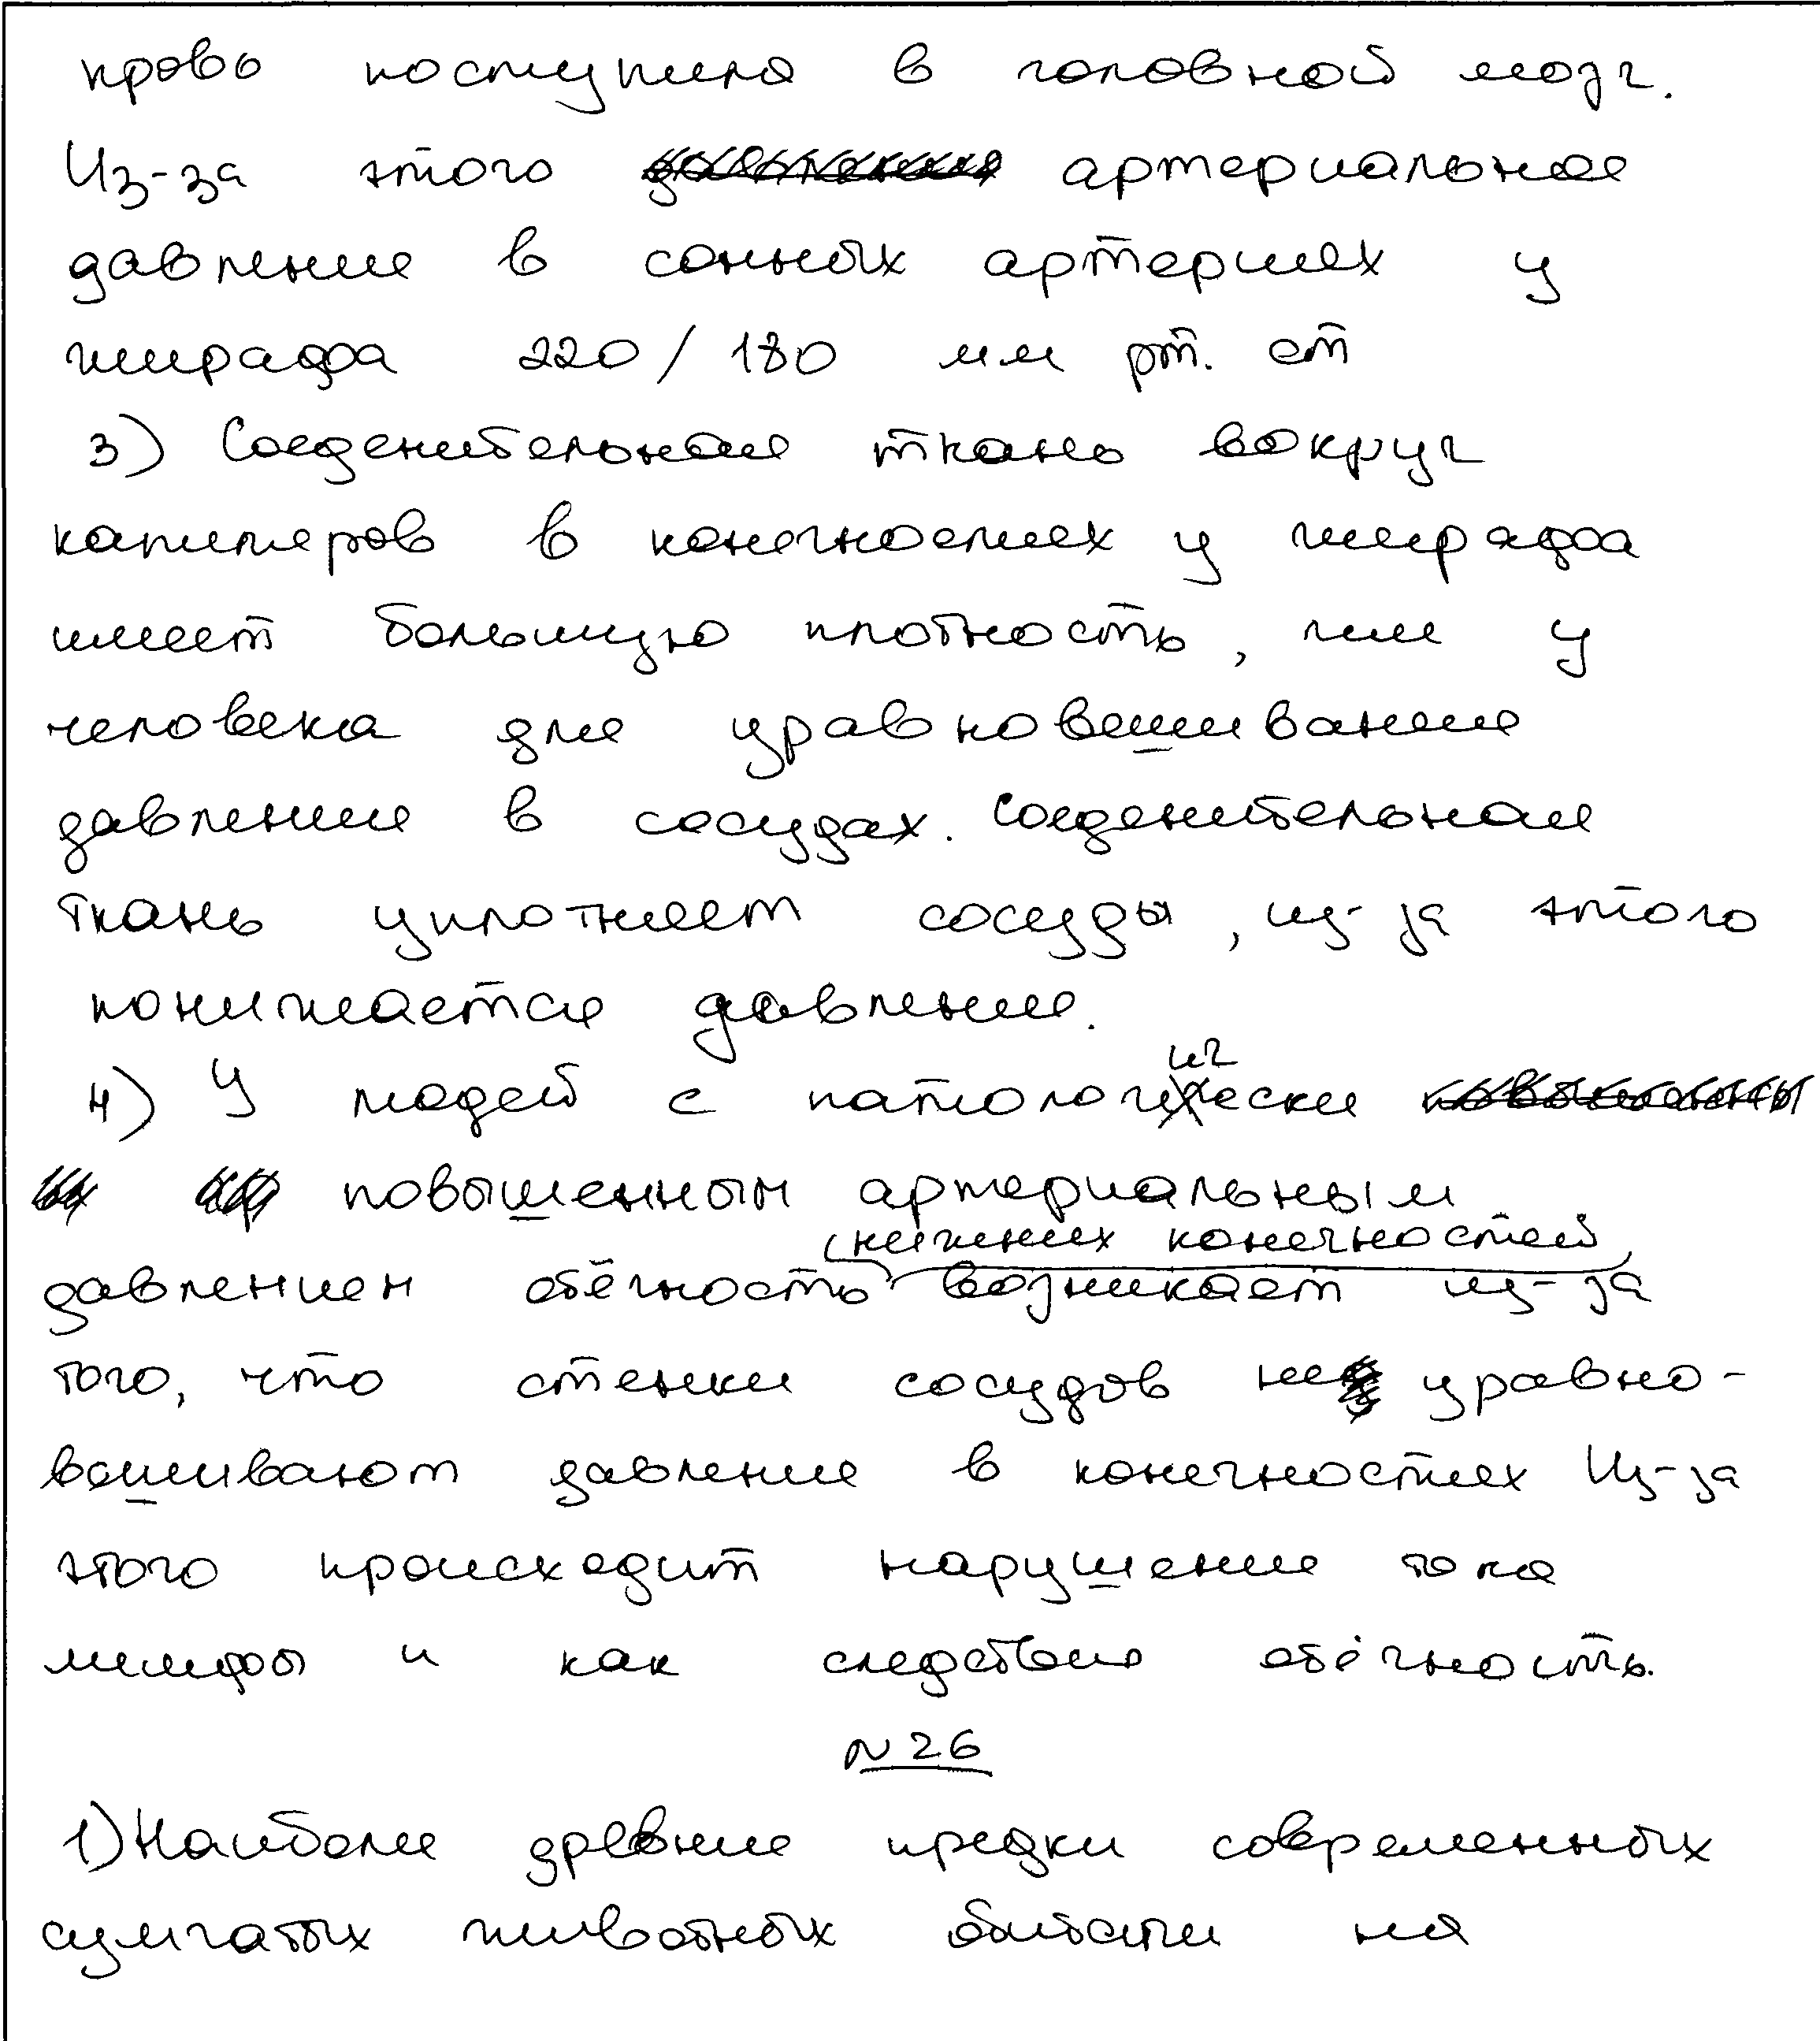 кровь поступила в головной мозг.
Из-за этого артериальное
давление в сонных артериях у
жирафа 220/180 мм рт. ст
3) Соеденительная ткань вокруг
капиляров в конечностях у жирафа
имеет большую плотность, чем у
человека для уравновешивания
давления в сосудах. Соеденительная
ткань уплотняет сосуды, из-за этого
понижается давление.
4) У людей с патологически
повышенным артериальным
(нижних конечностей)
давлением отёчность возникает из-за
того, что стенки сосудов не уравно-
вешивают давление в конечностях Из-за
этого происходит нарушение тока
лимфы и как следствие отёчность.
№26
1) Наиболее древние предки современных
сумчатых животных обитали на